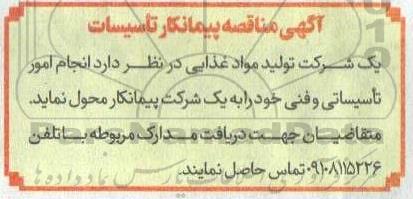 آگهی مناقصه پیمانکار تأسیسات
یک شرکت تولید مواد غذایی در نظر دارد انجام امور
تأسیساتی و فنی خود را به یک شرکت پیمانکار محول نماید.
متقاضیان جهت دریافت مدارک مربوطه با تلفن
۰۹۱۰۸۱۱۵۲۲۶ تماس حاصل نمایند.